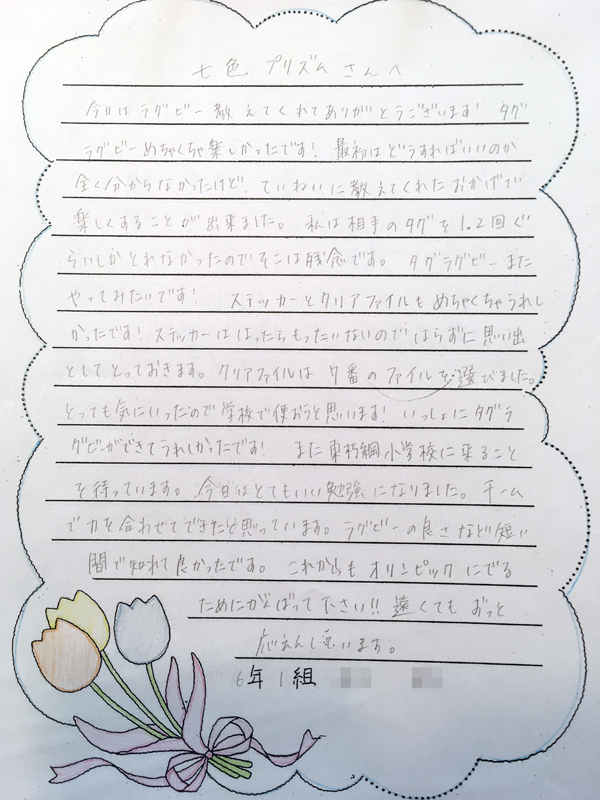 七色プリズムさんへ
今日はラグビー教えてくれてありがとうございます! タグ
ラグビーめちゃくちゃ楽しかったです! 最初はどうすればいいのか
全く分からなかったけど、ていねいに教えてくれたおかげで
楽しくすることが出来ました。 私は相手のタグを1.2回ぐ
らいしかとれなかったのでそこは残念です。 タグラグビーまた
やってみたいです! ステッカーとクリアファイルもめちゃくちゃうれし
かったです! ステッカーははったらもったいないのではらずに思い出
としてとっておきます。クリアファイルは7番のファイルを選びました。
とっても気にいったので学校で使おうと思います! いっしょにタグラ
グビーができてうれしかったです! また東朽網小学校に来ること
を待っています。 今日はとてもいい勉強になりました。 チーム
で力を合わせてできたと思っています。ラグビーの良さなど短い
間で知れて良かったです。 これからもオリンピックにでる
ためにがんばって下さい!! 遠くてもずっと
応えんし ています。
6年1組